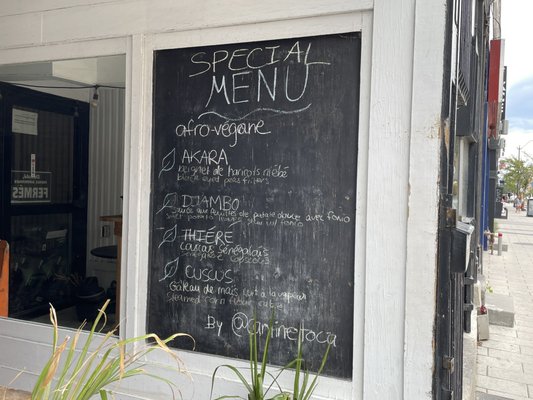 SPECIAL
MENU
afro-végane
AKARA
beignet de haricots niébé
black eyed peas fritters
DJAMBO
sauce aux feuilles de patate douce avec fonio
THIÉRE
couscous Sénégalais
CUSCUS
Gâteau de maïs cuit à la vapeur
steamed corn flour
By @Cantine Toca
FERMÉS